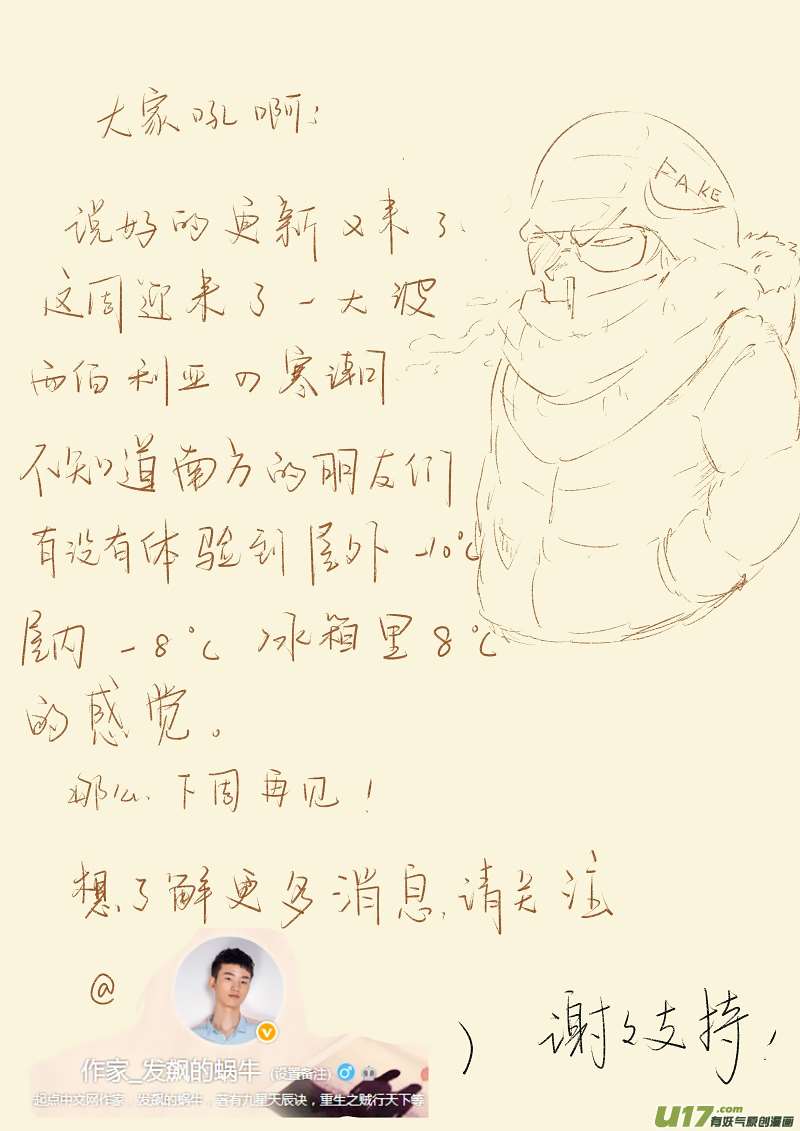 大家吼啊：
FAKE
说好的更新又来了.
这周迎来了一大波
西伯利亚の寒潮
不知道南方的朋友们
有没有体验到屋外-10℃
屋内-8℃ 冰箱里8℃
的感觉。
那么.下周再见!
想了解更多消息,请关注
@
作家_发飙的蜗牛 (设置备注)
起点中文网作家，发飙的蜗牛，著有九星天辰诀，重生之贼行天下等
) 谢々支持!
U17.com
有妖气原创漫画